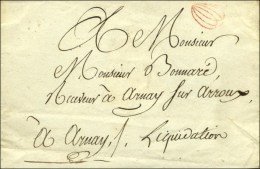 A Monsieur
Monsieur Bonnard,
Receveur à Arnay sur Arroux,
à Arnay, s. Liquidation